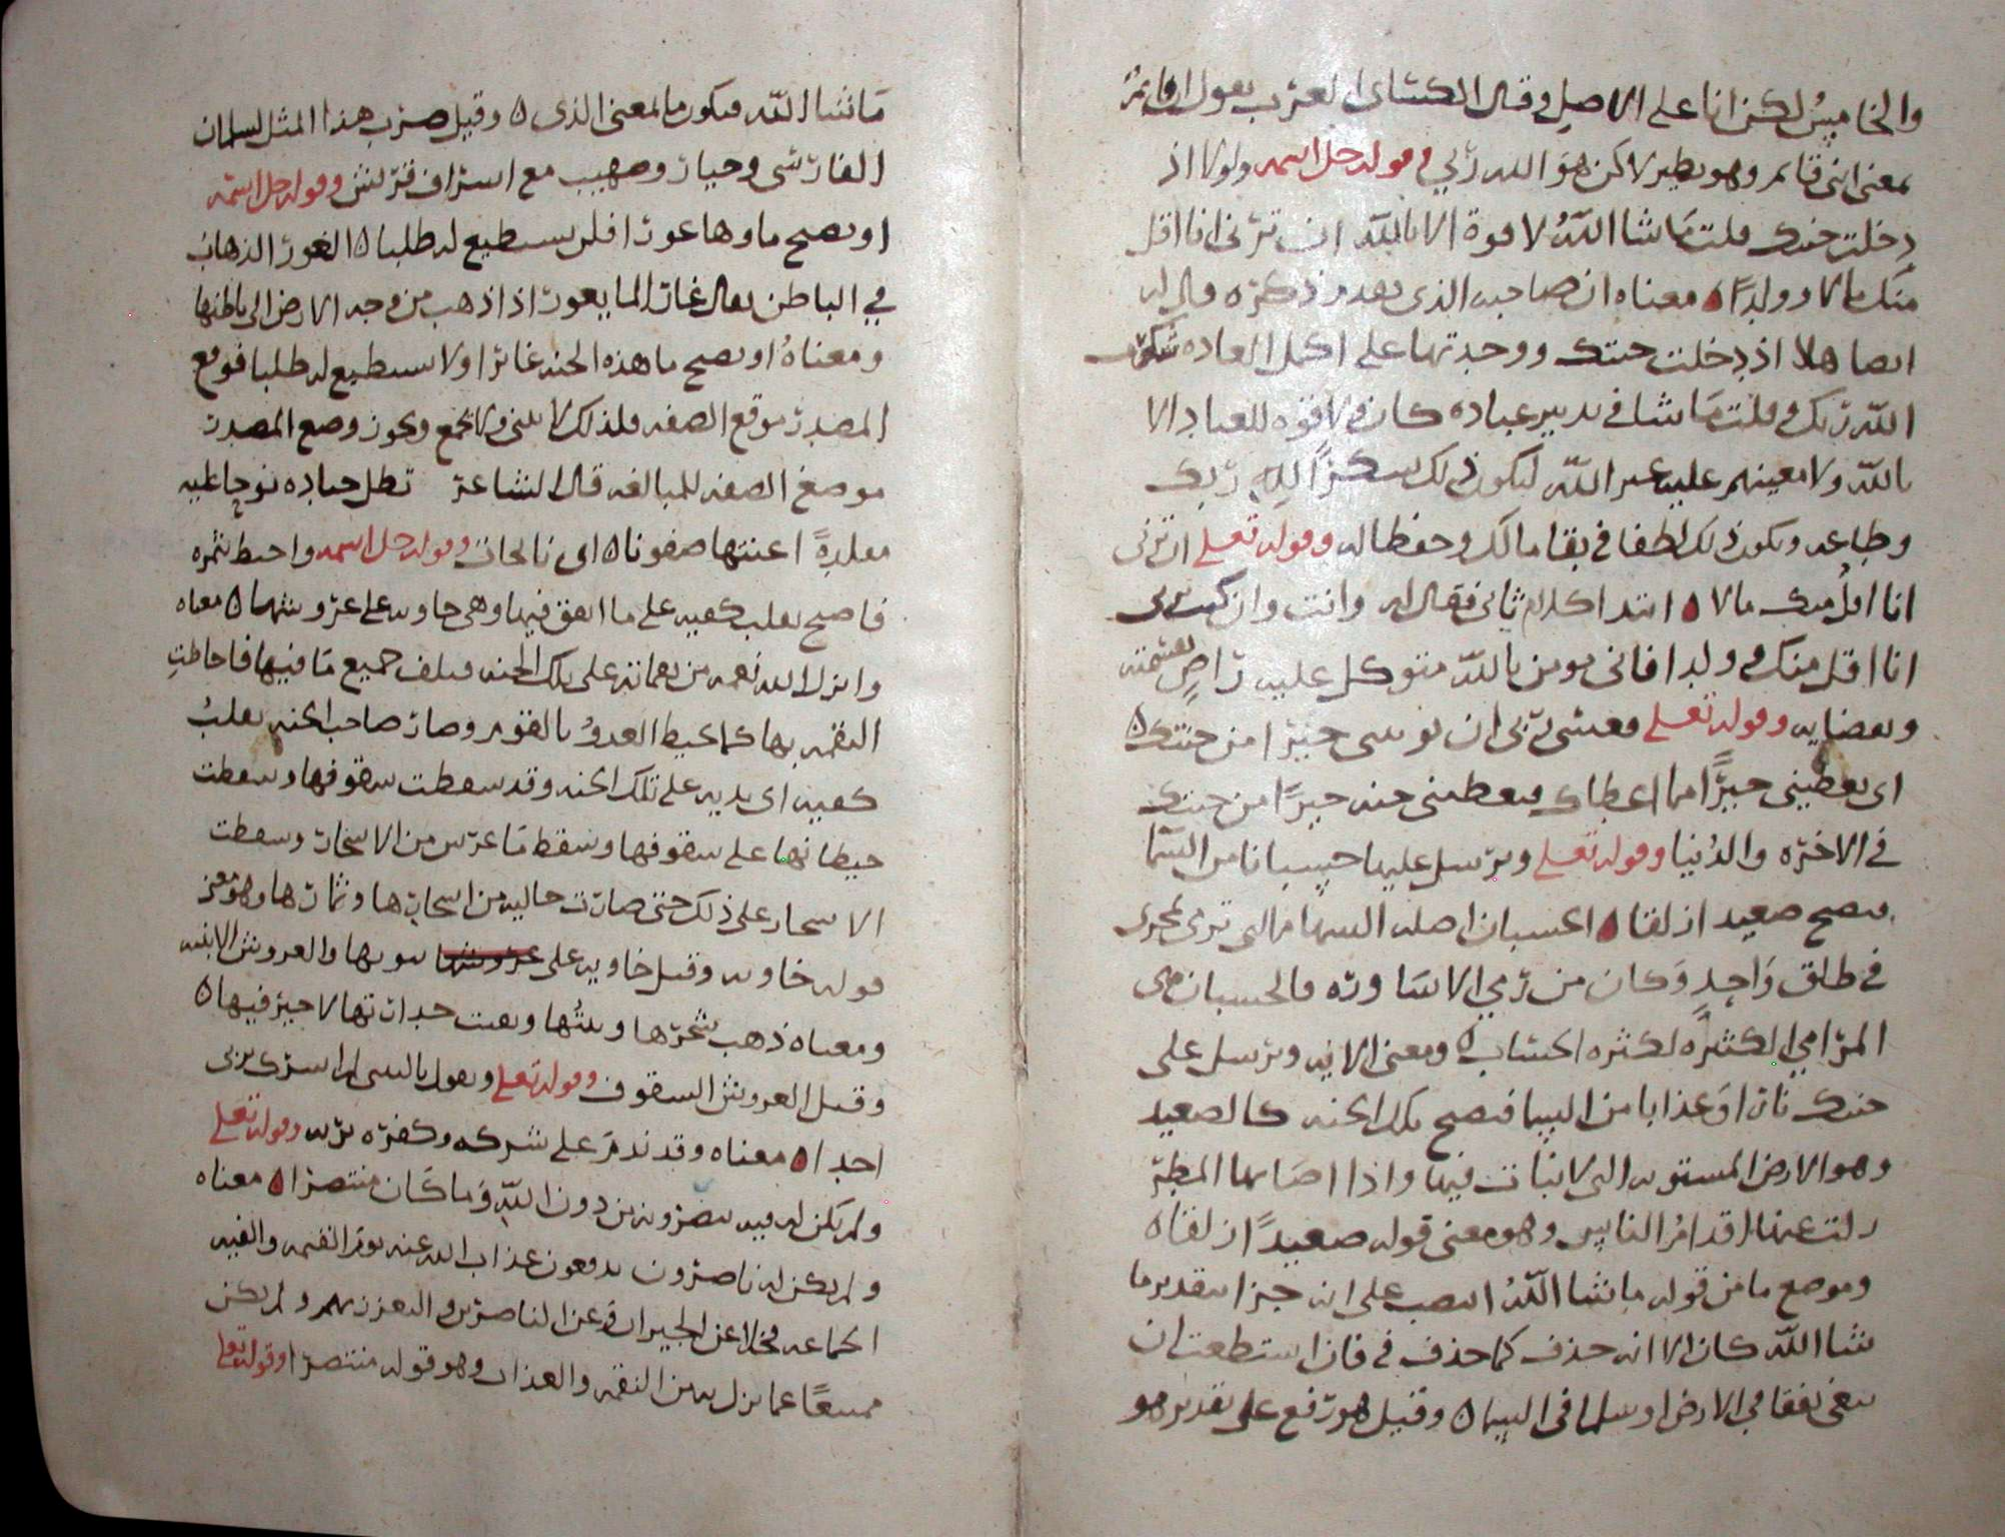 والخامس لكن انا على الاصل وقال الكسائي العرب يقول ان قائم
بمعنى انني قائم وهو نظير لاكن هو الله ربي وقوله جل اسمه ولولا اذ
دخلت جنتك قلت ما شا اللّه لا قوة الا باللّه ان ترني انا اقل
منك مالا وولدا ه معناه ان صاحبه الذي تقدم ذكره قال له
ايضا هلا اذ دخلت جنتك ووجدتها على اكمل العاده شكرت
اللّه ربك وقلت ما شا في تدبير عباده كان ولا قوه للعباد الا
باللّه ولا معينهم عليه غير اللّه ليكون ذلك شكراً للّه ربك
وطاعه ويكون ذلك لطفا في بقا مالك وحفظا له وقوله تعلى ان ترني
انا اقل منك مالا ه ابتدا كلام ثاني فقال له وانت وان كنت ترى
انا اقل منك وولدا فاني مومن باللّه متوكل عليه راضٍ بقسمته
وبقضايه وقوله تعلى فعسى ربي ان يوتيني خيرا من جنتك ه
اي يعطيني خيرًا مما اعطاك فيعطيني جنه خيرًا من جنتك
في الاخره والدنيا وقوله تعلى ويرسل عليها حسبانا من السما
فتصبح صعيدا زلقا ه الحسبان اصله السهام التي ترى لمجرى
في طلق واحدٍ وكان من رمي الاساوره فالحسبان هي
المرامي الكثيره لكثره الحساب ه ومعنى الايه ويرسل على
جنتك نارا او عذابا من السما فتصبح تلك الجنه كالصعيد
وهو الارض المستويه التي لا نبات فيها واذا اصابها المطر
زلت عنها اقدام الناس وهو معنى قوله صعيداً زلقا ه
وموضع ما من قوله ما شا اللّه النصب على انه جزا بتقدير ما
شا اللّه كان الا انه حذف كما حذف في فان استطعت ان
تبتغي نفقا في الارض او سلما في السما ه وقيل هو رفع على تقدير هو
ما شا اللّه فيكون ما بمعنى الذي ه وقيل ضرب هذا المثل لسلمان
الفارسي وخبار وصهيب مع اشراف قريش وقوله جل اسمه
او يصبح ماوها غورا فلن يستطيع له طلبا ه الغور الذهاب
في الباطن يقال غار الما يغور اذا ذهب من وجه الارض الى باطنها
ومعناه او يصبح ما هذه الجنه غائرا ولا يستطيع له طلبا فوقع
المصدر موقع الصفه فلذلك لا يثنى ولا يجمع ويجوز وضع المصدر
موضع الصفه للمبالغه قال الشاعر تظل جياده نوحا عليه
مقلدهً اعنتها صفونا ه اي نائحات وقوله جل اسمه واحيط بثمره
فاصبح يقلب كفيه على ما انفق فيها وهي خاويه على عروشها ه معناه
وانزل الله نقمه من نقماته على تلك الجنه فتلف جميع ما فيها فاحاطت
النقمه بها كما يحيط العدو بالقوم وصار صاحب الجنه يقلب
كفيه اي يديه على تلك الجنه وقد سقطت سقوفها وسقطت
حيطانها على سقوفها وسقط ما عرس من الاشجار وسقطت
الاشجار على ذلك حتى صارت خاليه من اشجارها وثمارها وهو معنى
قوله خاويه وقيل خاويه على عروشها بيوتها والعروش الابنيه
ومعناه ذهب شجرها وبقيت جدراتها لا خير فيها ه
وقيل العروش السقوف وقوله تعلى ويقول يا ليتني لم اشرك بربي
احدا ه معناه وقد ندم على شركه وكفره بربه وقوله تعلى
ولم يكن له فيه ينصرونه من دون اللّه وما كان منتصرا ه معناه
ولم يكن له ناصرون يدفعون عذاب الله عنه يوم القيمه والفيه
الجماعه فخلا عن الجيران وعن الناصرين والتعزز بهم ولم يكن
ممتنعًا عما نزل به من النقمه والعذاب وهو قوله منتصرا وقوله تعلى